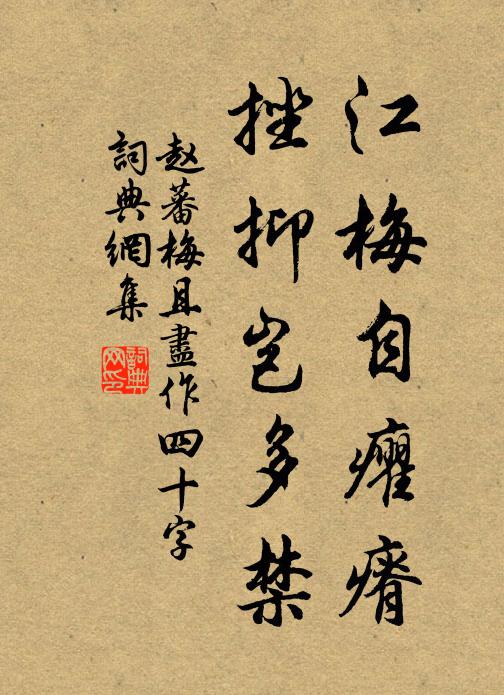 江梅自癯瘠
挫抑岂多禁
赵蕃梅且盡作四十字
詞典網集
詞典网印